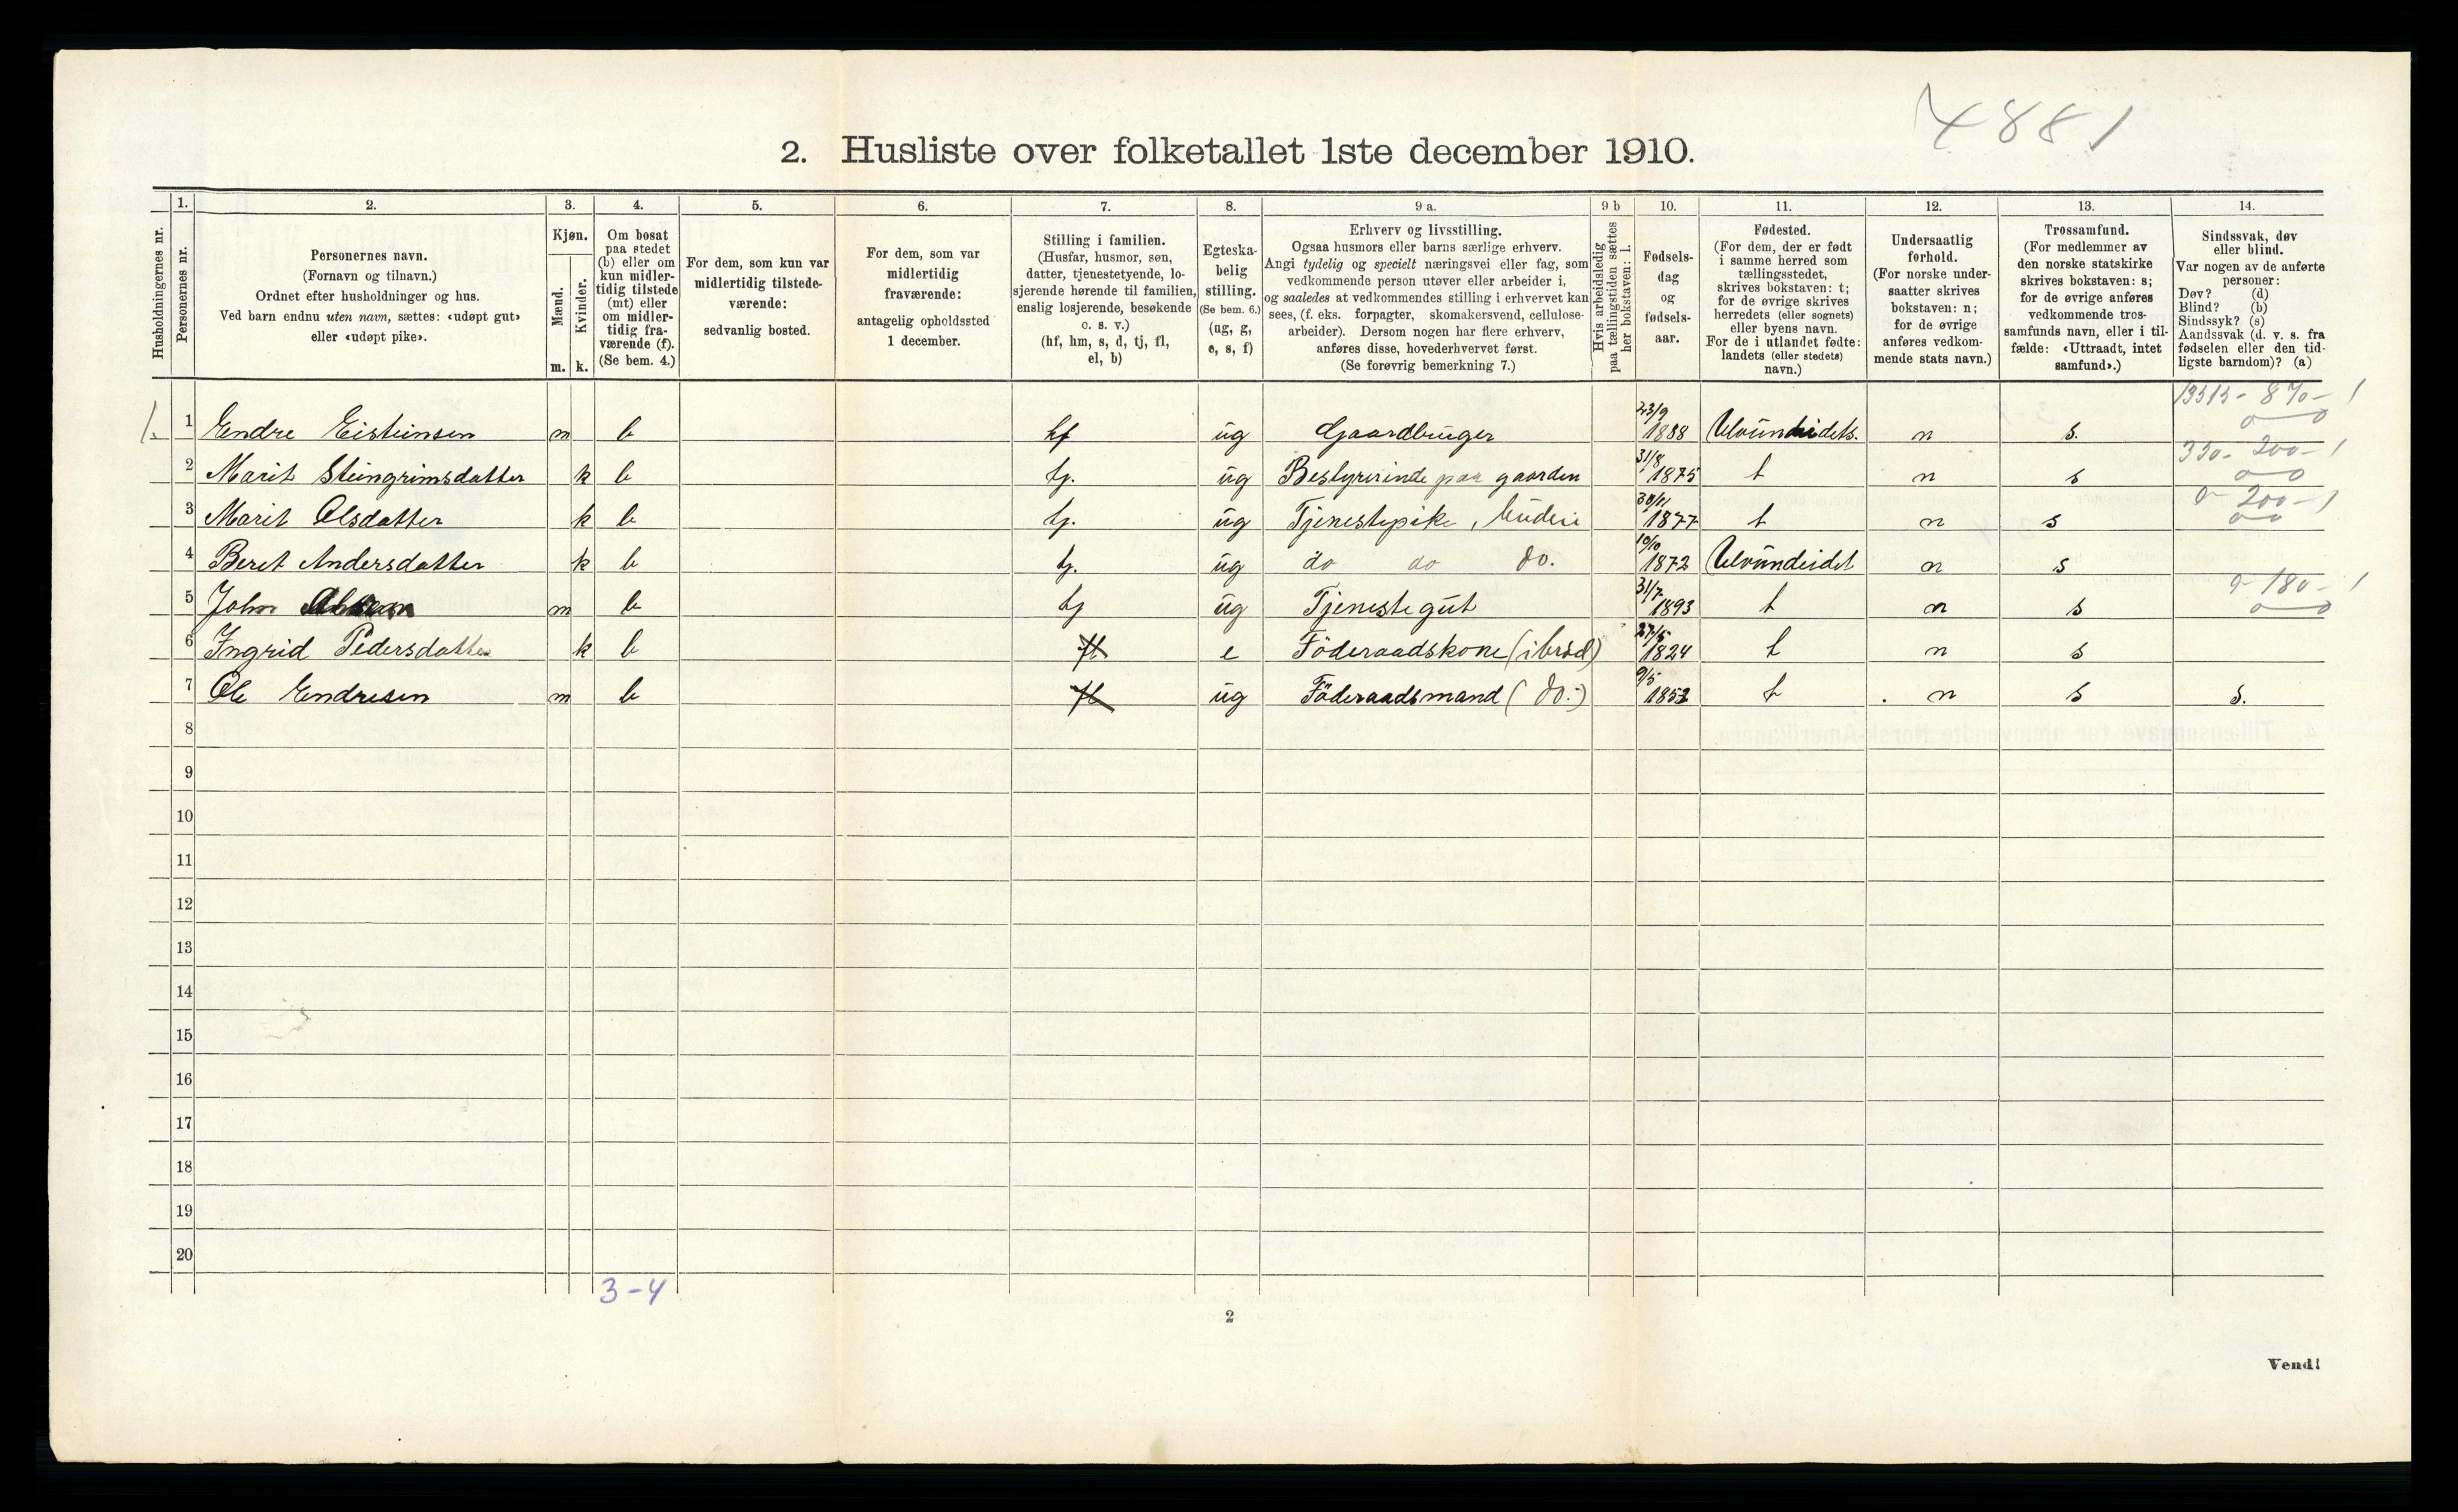 4881
2. Husliste over folketallet 1ste december 1910.
Husholdningernes nr.
1.
Personernes nr.
2.
Personernes navn.
(Fornavn og tilnavn.)
Ordnet efter husholdninger og hus.
Ved barn endnu uten navn, sættes: «udøpt gut»
eller «udøpt pike».
3.
Kjøn.
Mænd.
Kvinder.
m. k.
4.
Om bosat
paa stedet
(b) eller om
kun midler-
tidig tilstede
(mt) eller
om midler-
tidig fra-
værende (f).
(Se bem. 4.)
5.
For dem, som kun var
midlertidig tilstede-
værende:
sedvanlig bosted.
6.
For dem, som var
midlertidig
fraværende:
antagelig opholdssted
1 december.
7.
Stilling i familien.
(Husfar, husmor, søn,
datter, tjenestetyende, lo-
sjerende hørende til familien,
enslig losjerende, besøkende
o. s. v.)
(hf, hm, s, d, tj, fl,
el, b)
8.
Egteska-
belig
stilling.
(Se bem. 6.)
(ug, g,
e, s, f)
9 a.
Erhverv og livsstilling.
Ogsaa husmors eller barns særlige erhverv.
Angi tydelig og specielt næringsvei eller fag, som
vedkommende person utøver eller arbeider i,
og saaledes at vedkommendes stilling i erhvervet kan
sees, (f. eks. forpagter, skomakersvend, cellulose-
arbeider). Dersom nogen har flere erhverv,
anføres disse, hovederhvervet først.
(Se forøvrig bemerkning 7.)
9 b
Hvis arbeidsledig
paa tællingstiden sættes
her bokstaven: l.
10.
Fødsels-
dag
og
fødsels-
aar.
11.
Fødested.
(For dem, der er født
i samme herred som
tællingsstedet,
skrives bokstaven: t;
for de øvrige skrives
herredets (eller sognets)
eller byens navn.
For de i utlandet fødte:
landets (eller stedets)
navn.)
12.
Undersaatlig
forhold.
(For norske under-
saatter skrives
bokstaven: n;
for de øvrige
anføres vedkom-
mende stats navn.)
13.
Trossamfund.
(For medlemmer av
den norske statskirke
skrives bokstaven: s;
for de øvrige anføres
vedkommende tros-
samfunds navn, eller i til-
fælde: «Uttraadt, intet
samfund».)
14.
Sindssvak, døv
eller blind.
Var nogen av de anførte
personer:
Døv? (d)
Blind? (b)
Sindssyk? (s)
Aandssvak (d. v. s. fra
fødselen eller den tid-
ligste barndom)? (a)
1 Endre Eisteinsen m b hf ug Gaardbruger 23/9 1888 n s.
2 Marit Steingrimsdatter k b tj. ug Bestyrerinde paa gaarden 31/8 1875 t n s 200-1
3 Marit Olsdatter k b tj. ug Tjenestepike, 30/11 1877 t n s 0- 200-1
4 Beret Andersdatter k b tj. ug do do do. 10/10 1872 Ulvundeidet n s
5 John m b tj ug Tjenestegut 31/7 1893 t n s 0- 180-1
6 Ingrid Pedersdatter k b fl e Föderaadskone (i bröd) 27/5 1824 t n s
7 Ole Endresen m b fl ug Föderaadsmand (do.) 9/5 t n s s.
8
9
10
11
12
13
14
15
16
17
18
19
20
3-4
2
Vend!